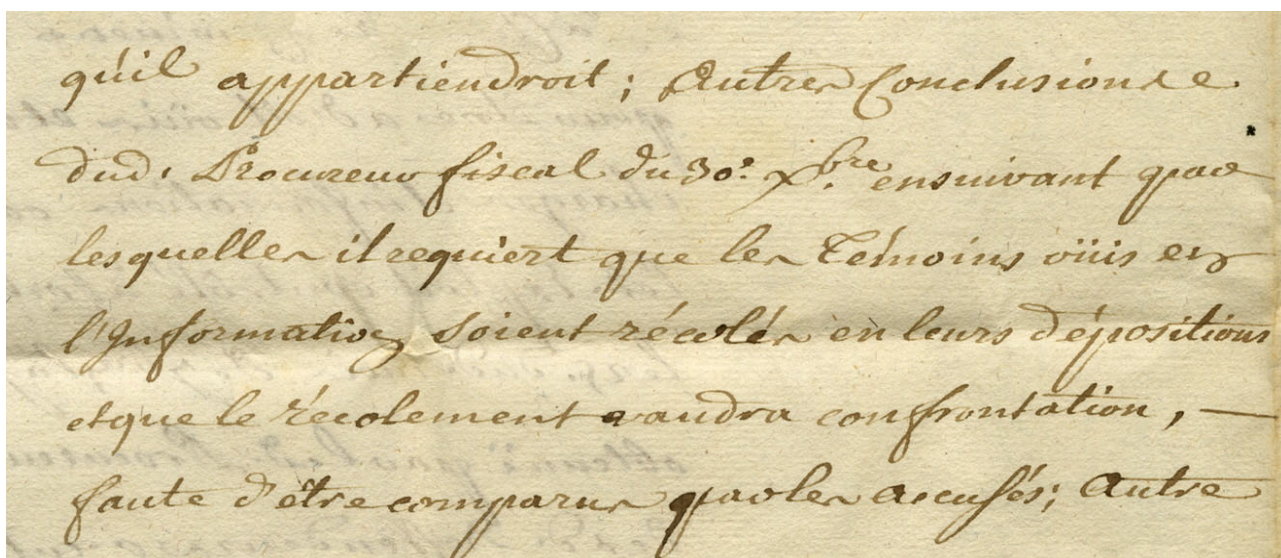 qu'il appartiendroit; Autres Conclusions
dud. Procureur fiscal du 30e. Xbre. ensuivant par
lesquelles il requiert que les Témoins oüis en
l'Information, soient récolés en leurs dépositions
et que le récolement vaudra confrontation, —
faute d'être comparus par les accusés; autre